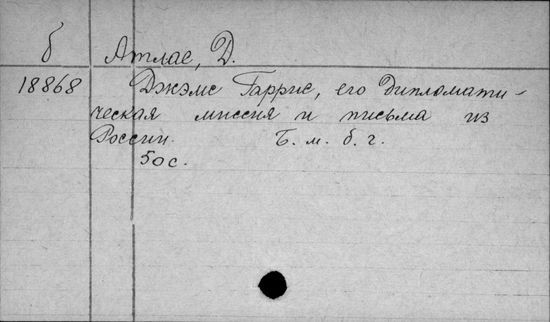 б Атлас, Д.
18868 Джэмс Гаррис, его дипломати-
ческая миссия и письма из
России. Б. м. б. г.
50 с.